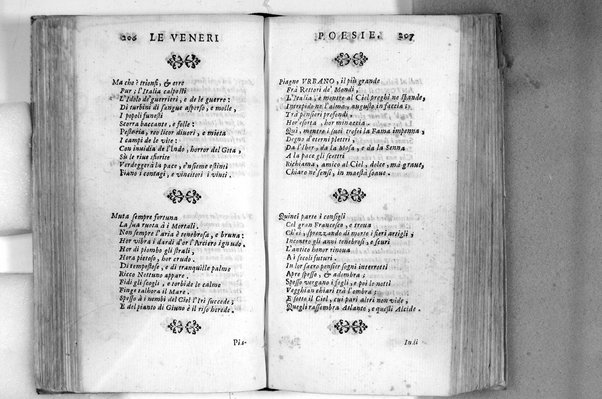 206 LE VENERI
Ma che? trionfi, & erre
Pur, l'Italia calpesti
L'Idolo de' guerrieri, e de le guerre:
Di turbini di sangue asperso, e molle,
I popoli funesti
Scorra baccante, e folle:
Pestaria, reo licor divori, e mieta
I campi de le vite:
Con invidia de l'Indo, horror del Geta,
Sù le rive fiorite
Verdeggerà la pace, e'nsieme estinti
Fiano i contagi, e vincitori i vinti.
Muta sempre fortuna
La sua ruota à i Mortali.
Non sempre l'aria è tenebrosa, e bruna:
Hor vibra i dardi d'or l'Arciero ignudo.
Hor di piombo gli strali,
Hora pietoso, hor crudo.
Di tempestose, e di tranquille palme
Ricco Nettuno appare.
Fidi gli scogli, e torbide le calme
Finge talhora il Mare.
Spesso à i nembi del Ciel l'Iri succede;
E del pianto di Giuno è il riso herede.
Pia-
POESIE. 207
Piagne URBANO, il più grande
Frà Rettori de' Mondi,
L'Italia, e mentre al Ciel preghi ne spande,
Intrepido ne l'alma, augusto in faccia
Trà pensieri profondi,
Hor esorta, hor minaccia.
Qui, mentre i suoi trofei la Fama impenna,
Degno d'eterni plettri,
Da l'Iber, da la Mosa, e da la Senna
A la pace gli scettri
Richiama, amico al Ciel, dolce, ma grave,
Chiaro ne' sensi, in maestà soave.
Quinci parte i consigli
Col gran Francesco, e trova
Ch'ei, sprezzando di morte i fieri artigli,
Incontro gli anni tenebrosi, e scuri
L'antico honor rinova
A i secoli futuri.
In lor sacro pensier sogni interrotti
Apre spesso, & adombra;
Spesso vergano i fogli, e poi le notti
Vegghian chiari trà l'ombra;
E sotto il Ciel, cui pari altri non vide,
Quegli rassembra Atlante, e questi Alcide.